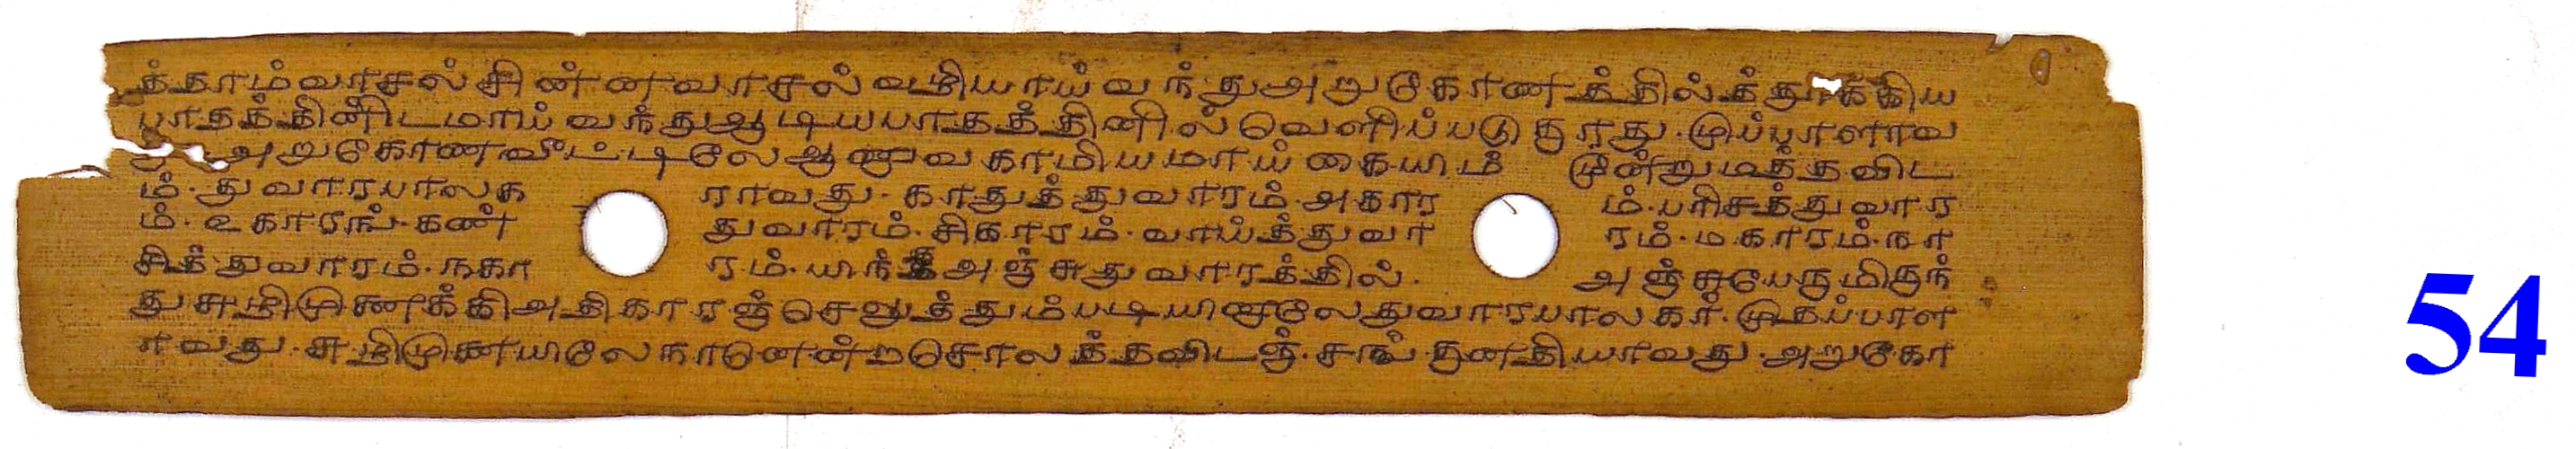 த்தாம்வாசல் சின்னவாசல் வழியாய் வந்து அறுகோணத்தில்த்தூக்கிய
பாதத்தினிடமாய் வந்து ஆடியபாதத்தினில் வெளிப்படுகுரது. முப்பாளாவ
அறுகோண வீட்டிலே ஆணுவ காமியமாய்கையிம் மூன்றுமத்தவிட
ம். துவாரபாலக ராவது. காதுத்துவாரம். அகார ம். பரிசத்துவார
ம். உகாரங். கண் துவாரம். சிகாரம். வாய்த்துவா ரம். மகாரம். நா
சித்துவாரம். நகா ரம். யிந்த அஞ்சு துவாரத்தில். அஞ்சுபேருமிருந்
து சுழிமுணக்கி அதிகாரஞ் செலுத்தும்படியினாலே துவாரபாலகர். முதப்பாள
ாவது. சுழிமுனையிலே நானென்ற சொல த்தவிடஞ். சங் தனதியாவது. அறுகோ
54